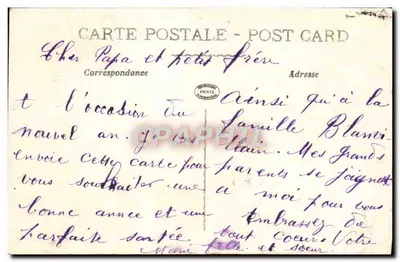 CARTE POSTALE - POST CARD
Cher Papa et petit frère
Correspondance
Adresse
PARIS
A l'occasion du
nouvel an. je vous
envoie cette carte pour
vous souhaiter une
bonne annee et une
parfaite santée
Ainsi qu'a la
famille
Mes grands
parents se joignent
a moi pour vous
Embrassez de
tout coeur Votre
et soeur